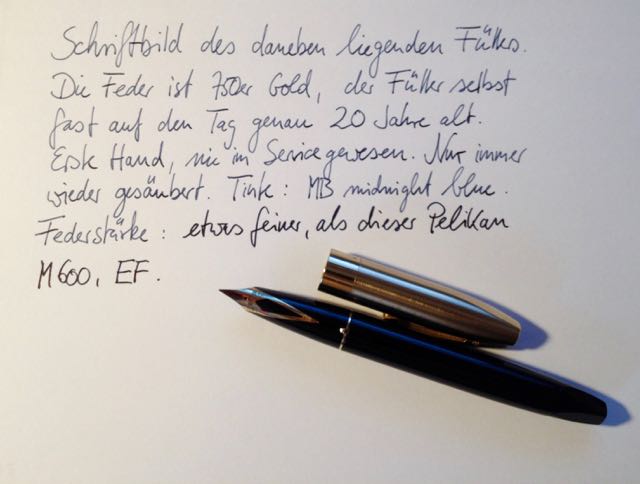 Schriftbild des daneben liegenden Füllers.
Die Feder ist 750er Gold, der Füller selbst
fast auf den Tag genau 20 Jahre alt.
Erste Hand, nie im Service gewesen. Nur immer
wieder gesäubert. Tinte: MB midnight blue.
Federstärke: etwas feiner, als dieser Pelikan
M600, EF.